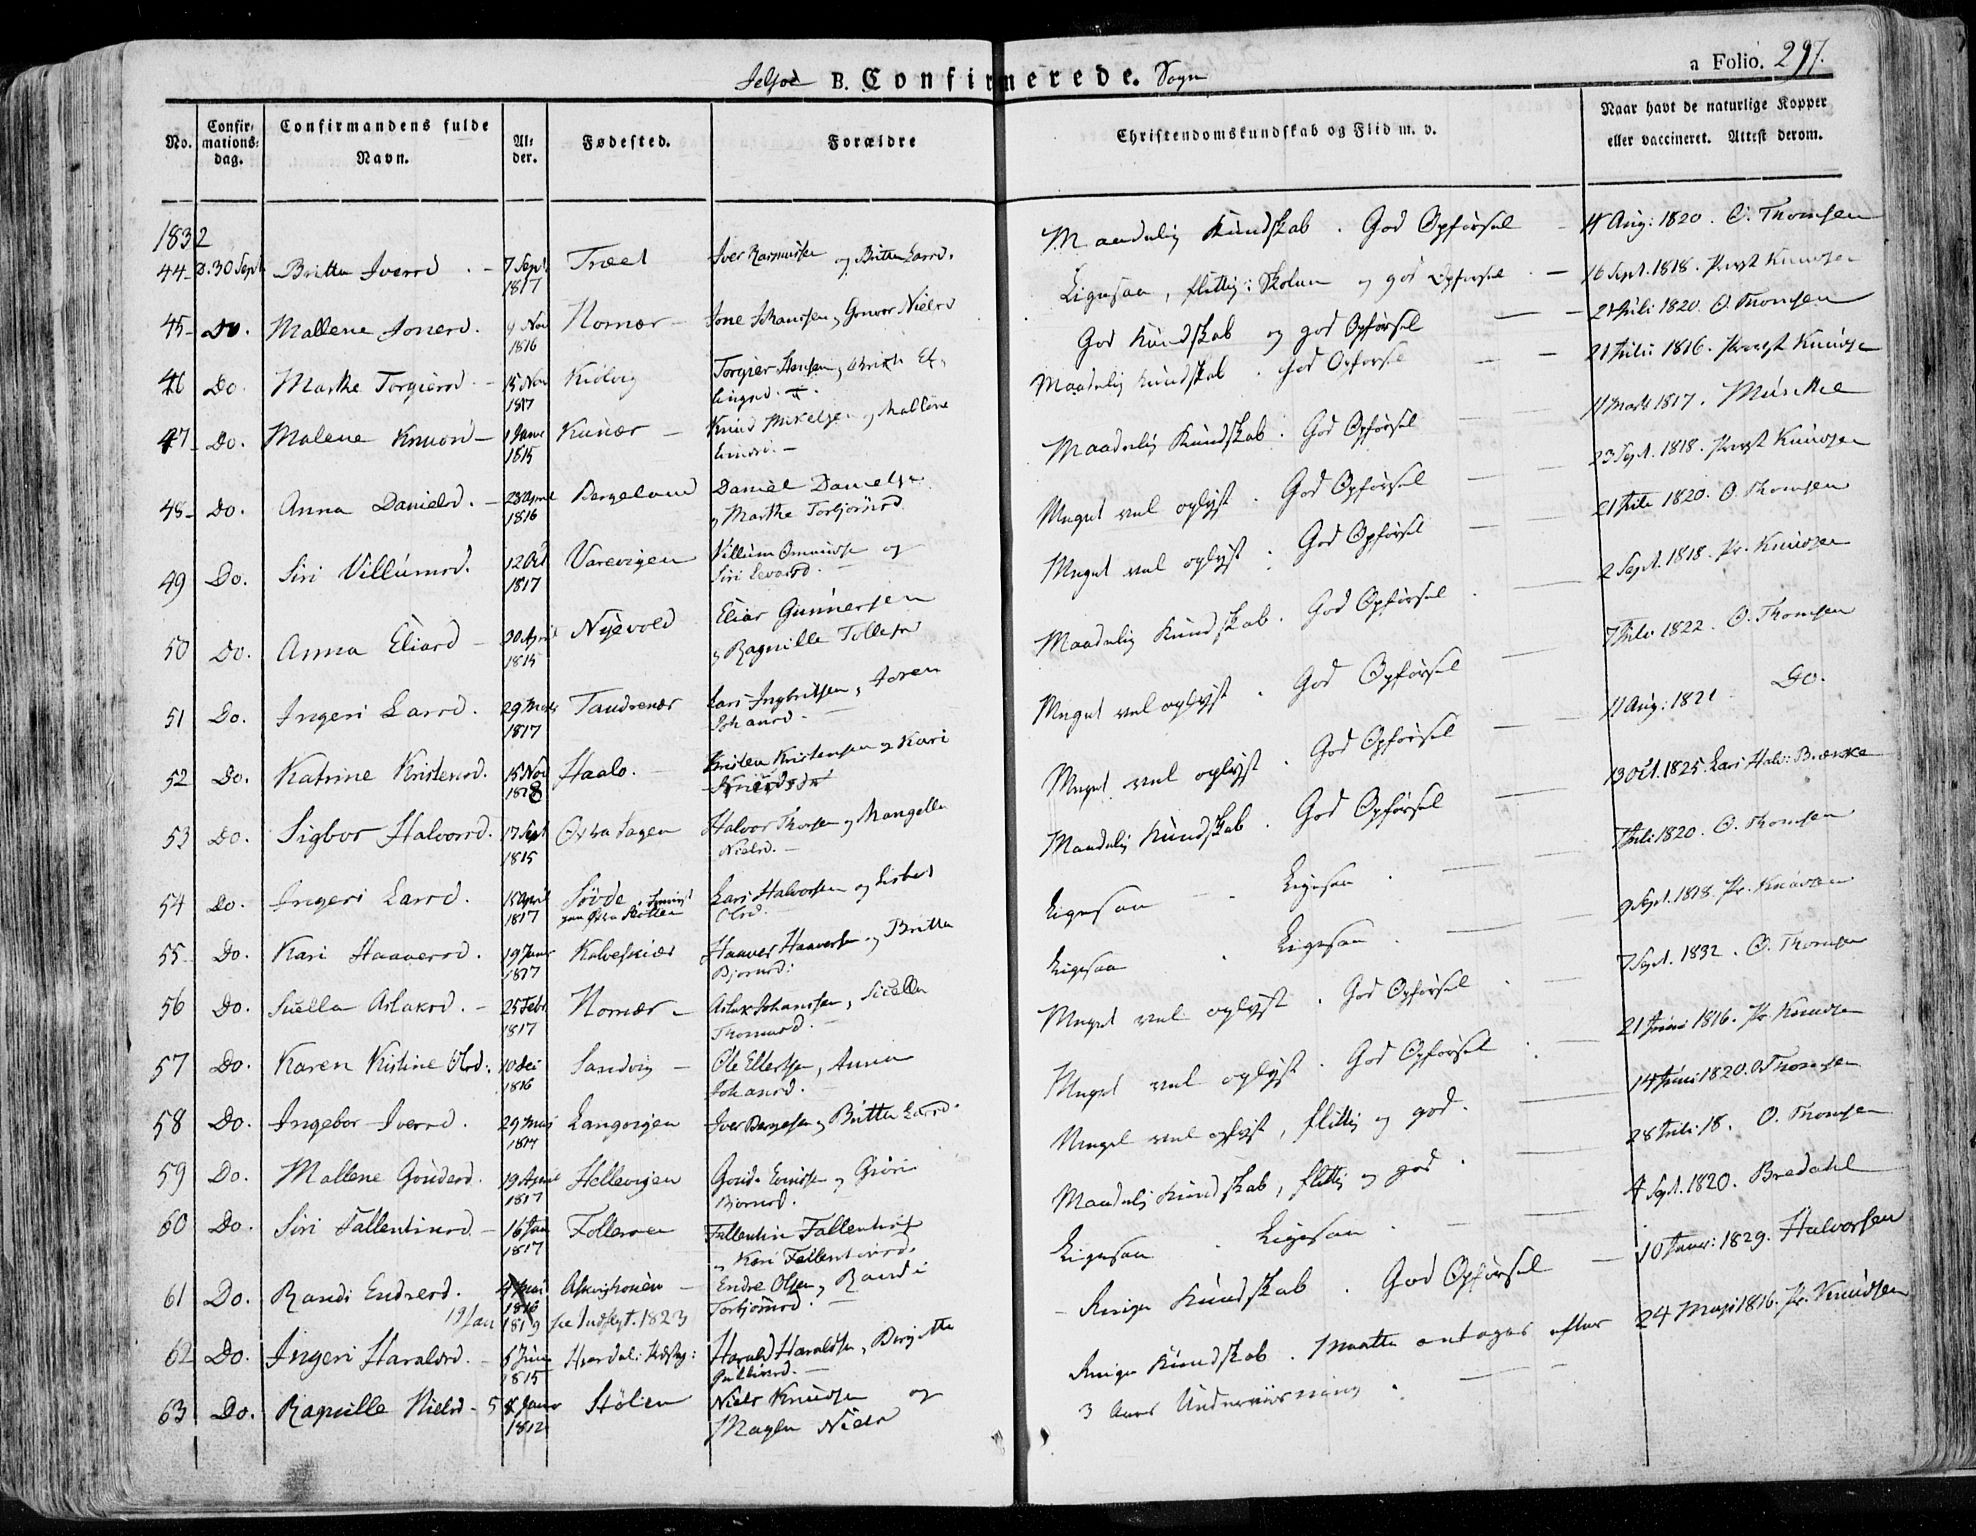 Jelsoe B. Confirmerede. Sogn
a Folio. 297.
No. Confirmationsdag. Confirmandens fulde Navn. Alder. Fødested. Forældre Christendomskundskab og Flid m. v. Naar havt de naturlige Kopper eller vaccineret. Attest derom.
1832
44 D. 30 Sept Britta Iversd. 7 Sept 1817 Træet Iver Rasmussen og Britta Larsd. Maadelig Kundskab. God Opførsel 4 Aug: 1820. O. Thomsen
45 Do. Mallene Jonesd. 9 Nov 1816 Nomær Jone Johansen, Gonvor Nielsd Ligesaa, flittig i Skolen og god Opførsel 16 Sept. 1818. Provst Knudsen
46 Do. Marthe Torgiersd. 15 Nov 1817 Kiølvig Torgier God Kundskab og god Opførsel 21 Juli 1820. O. Thomsen
47 Do. Malene Knuds 1 Janu 1815 Kunær Knud Mikelsen og Mallene Maadelig Kundskab. God Opførsel 21 Juli 1816. Provst Knudsen
48 Do. Anna Danielsd. 28 April 1816 Bergeland Daniel Danielsen, Marthe Torbjörnsd Maadelig Kundskab. God Opførsel 11 Marts 1817.
49 Do. Siri Villumsd. 12 Oct 1817 Varevigen Villum Omundsen og Siri Meget vel oplyst. God Opførsel 23 Sept. 1818. Provst Knudsen
50 Do. Anna Eliasd 20 April 1815 Nyevold Elias Gunnersen, Ragnille Meget vel oplyst. God Opførsel 21 Juli 1820. O. Thomsen
51 Do. Ingeri Larsd. 29 Marts 1817 Tandrenær Lars Ingbritsen, Johansd. Maadelig Kundskab. God Opførsel 2 Sept. 1818. Pr. Knudsen
52 Do. Katrine Kristensd. 15 Nov 1818 Haalo. Kristen Kristensen og Kari Meget vel oplyst. God Opførsel 7 Juli 1822. O. Thomsen
53 Do. Sigbor Halvorsd. 17 Sept 1815 Østra Halvor Thorsen og Mangella Nielsd. Meget vel oplyst. God Opførsel 11 Aug: 1821 Do.
54 Do. Ingeri Larsd. 15 April 1817 Søvde, Lars Halvorsen og Lisbet Olsd. Maadelig Kundskab. God Opførsel 13 Oct. 1825. Lars Halv:
55 Do. Kari Haaversd. 19 Janr 1817 Haaver Haaversen og Britta Bjornsd: Ligesaa Ligesaa. 7 Juli 1820. O. Thomsen
56 Do. Siiella Aslaksd. 25 Febr. 1817 Nomær Aslak Johansen, Thomasd. Ligesaa Ligesaa. 9 Sept. 1818. Pr. Knudsen
57 Do. Karen Kistine Olsd. 10 Dec 1816 Sandvig Ole Ellertsen, Anna Johansd. Meget vel oplyst. God Opførsel 7 Sept. 1832. O. Thomsen
58 Do. Ingebor Iversd. 29 1817 Langvigen Iver og Britta Larsd. Meget vel oplyst. God Opførsel 21 Juni 1816. Pr. Knudsen
59 Do. Mallene Goudesd. 19 April 1817 Hellevigen Goude og Bjornsd. Meget vel oplyst, flittig og god. 14 Juni 1820. O. Thomsen
60 Do. Siri Fallentinsd. 16 Jan 1817 Folleroen Fallentin Fallentinsen, Kari Fallentinsd. Maadelig Kundskab, flittig og god. 28 Juli 18. O. Thomsen
61 Do. Randi Endresd. 1816 Endre Olsen, Randi Torbjörnsd. Ligesaa Ligesaa. 4 Sept. 1820. Bredahl
19 Jan 1819 se Indfyt. 1823
62 Do. Ingeri Haralsd. 6 Juni 1815 Harald Haraldsen, Birgitte Ringe Kundskab. God Opførsel 10 Janr: 1829. Halvorsen
63 Do. Ragnille Nielsd 1812 Stølen Niels Knudsen og Nielsd Ringe Kundskab. Maatte antages efter 3 Aars Underviisning. 24 Mai 1816. Pr. Knudsen